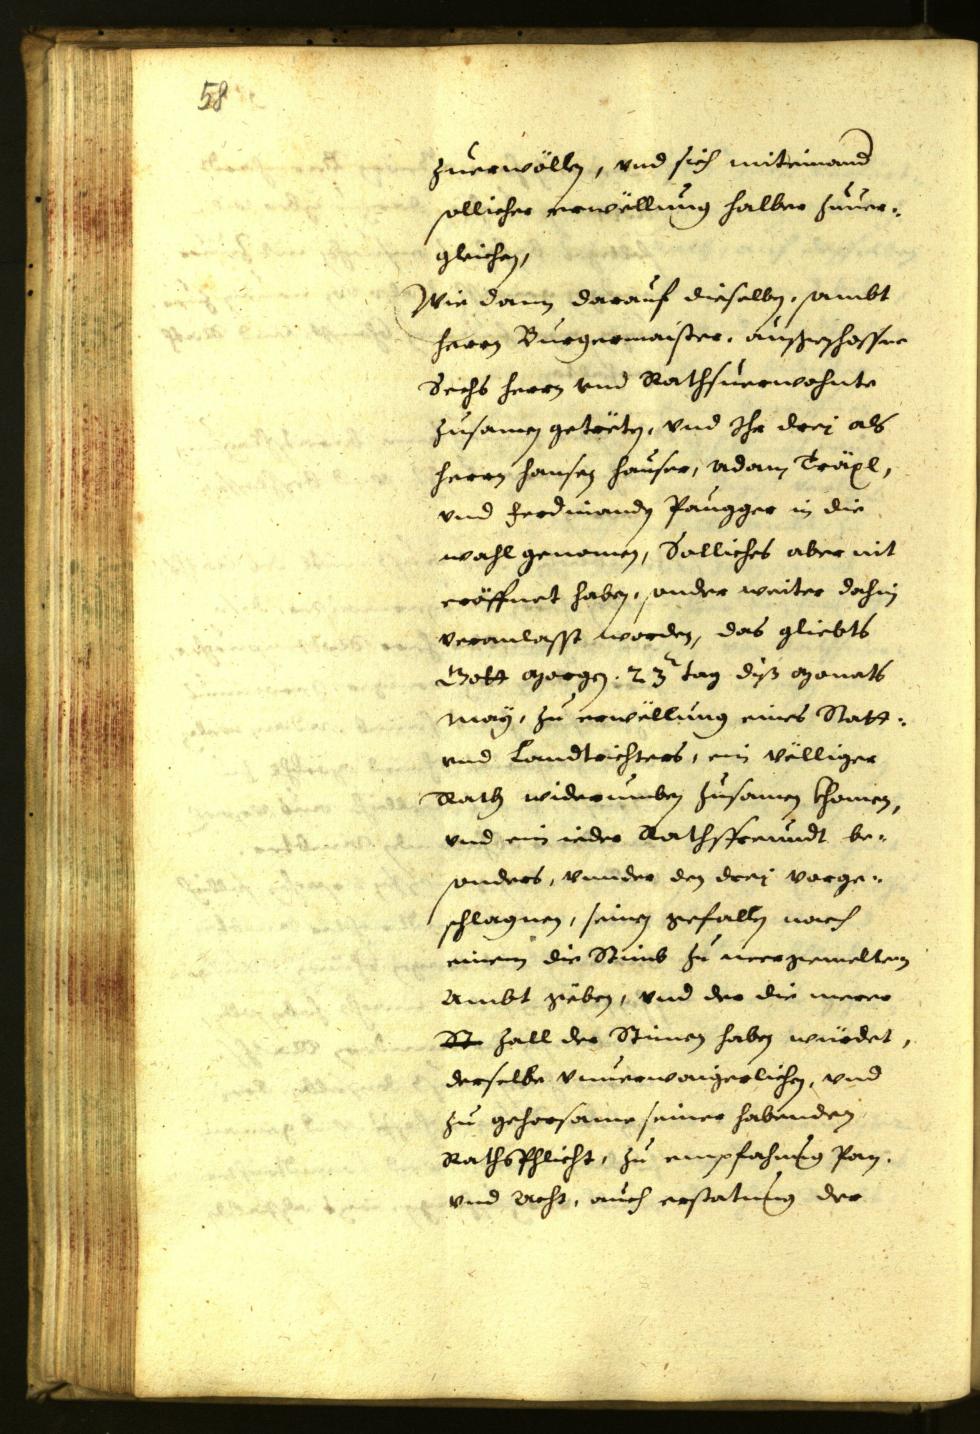 58
zuerwöllen, vnd sich miteinand
sollicher erwëllung halber zuuer-
gleichen,
Wie dann darauf dieselben, sambt
herrn Burgermaister, außgeschossne
Sechs herrn vnd Rathsuerwohnte
zusamen getrëten, vnd Ihr dreÿ als
herrn Hansen Hauser, Adam Träxl,
vnd Ferdinanden Paugger in die
wahl genomen, Solliches aber nit
eröffnet haben, sonder weiter dahin
veranlasst worden, das gliebts
Gott morgen 23 tag diß monats
Maÿ, zu erwëllung eines Statt-
vnd Landtrichters, ein völliger
Rath widerumben zusamen khomen,
vnd ein ieder Rathsfreundt be-
sonders, vnnder den dreÿ vorge-
schlagnen, seinen gefallen nach
einem die Stimb zu meergemeltem
Ambt gëben, vnd der die merer
St zall der Stimen haben würdet,
derselbe vnuerwaigerlichen, vnd
zu gehorsame seiner habenden
Rathspflicht, zu empfahung Pan,
vnd Acht, auch erstatung der